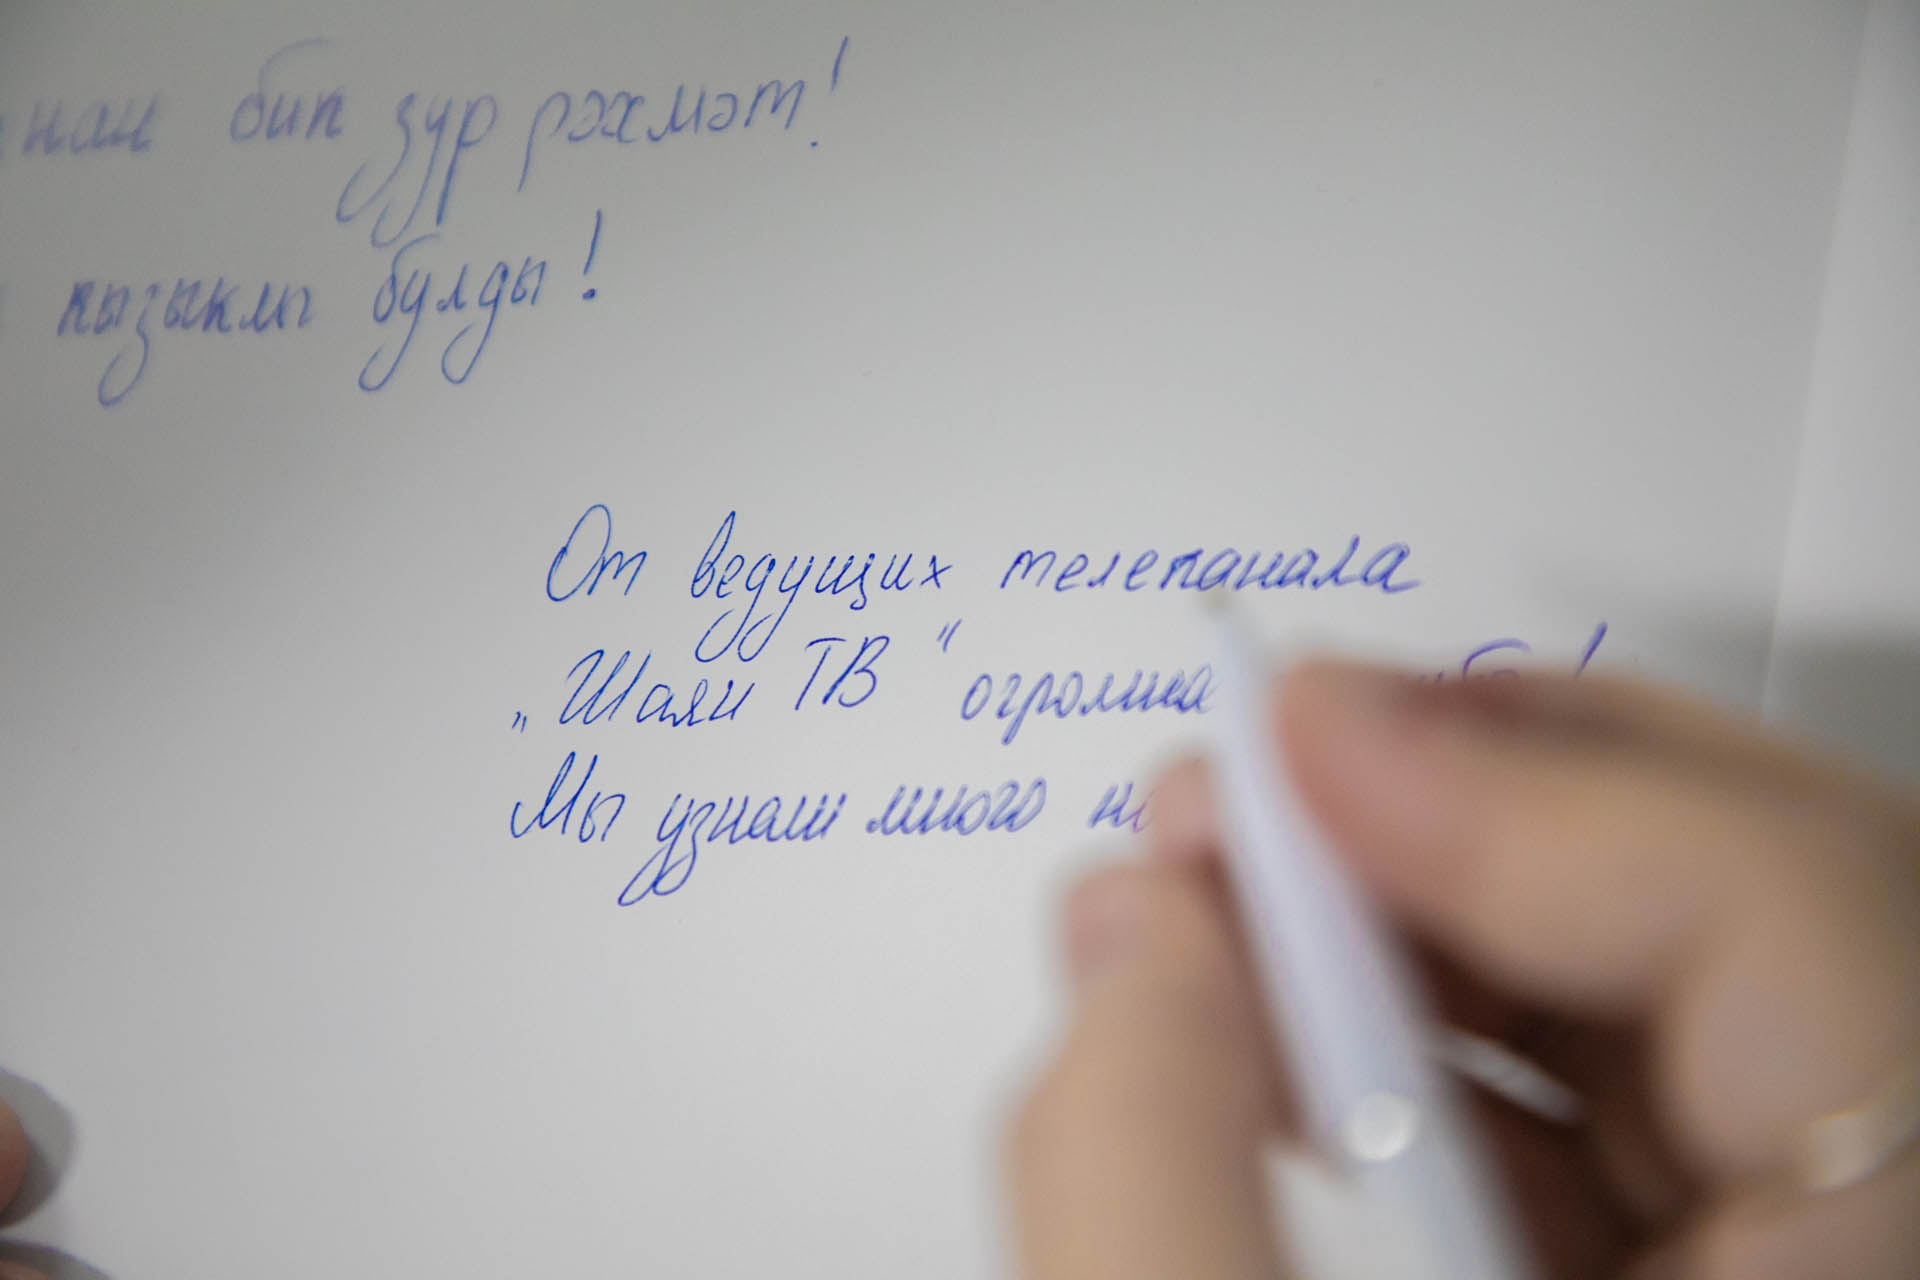 бик зур рәхмәт!
кызыклы булды!
От ведущих телеканала
„Шаян ТВ“
Мы узнали много